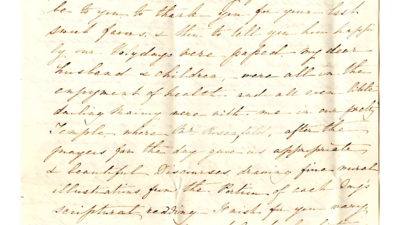 be to you to thank you for your last
favors, & then to tell you how happ
ily our Holydays were passed. my dear
husband & children, were all in the
enjoyment of health and all even
darling were with me in our pretty
Temple, where Dr. Rosenfeld, after the
prayers for the day gave us appropriate
& beautiful Discourses, drawing fine moral
illustrations from the Portion of each Day's
scriptural reading. I wish for you many